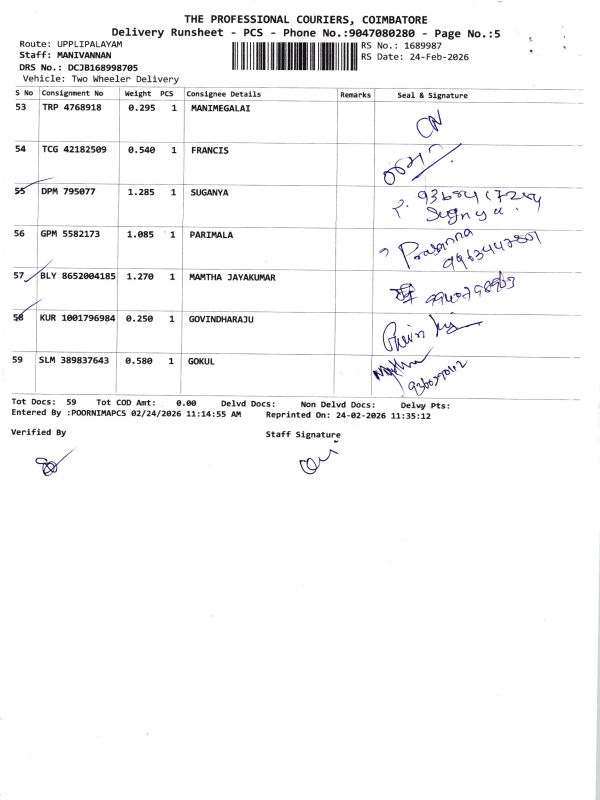 THE PROFESSIONAL COURIERS, COIMBATORE
Delivery Runsheet - PCS - Phone No.:9047080280 - Page No.:5
Route: UPPLIPALAYAM
Staff: MANIVANNAN
DRS No.: DCJB168998705
Vehicle: Two Wheeler Delivery
RS No.: 1689987
RS Date: 24-Feb-2026
S No Consignment No Weight PCS Consignee Details Remarks Seal & Signature
53 TRP 4768918 0.295 1 MANIMEGALAI
54 TCG 42182509 0.540 1 FRANCIS
55 DPM 795077 1.285 1 SUGANYA
56 GPM 5582173 1.085 1 PARIMALA Prasanna
57 BLY 8652004185 1.270 1 MAMTHA JAYAKUMAR
58 KUR 1001796984 0.250 1 GOVINDHARAJU
59 SLM 389837643 0.580 1 GOKUL
Tot Docs: 59 Tot COD Amt: 0.00 Delvd Docs: Non Delvd Docs: Delvy Pts:
Entered By :POORNIMAPCS 02/24/2026 11:14:55 AM Reprinted On: 24-02-2026 11:35:12
Verified By Staff Signature